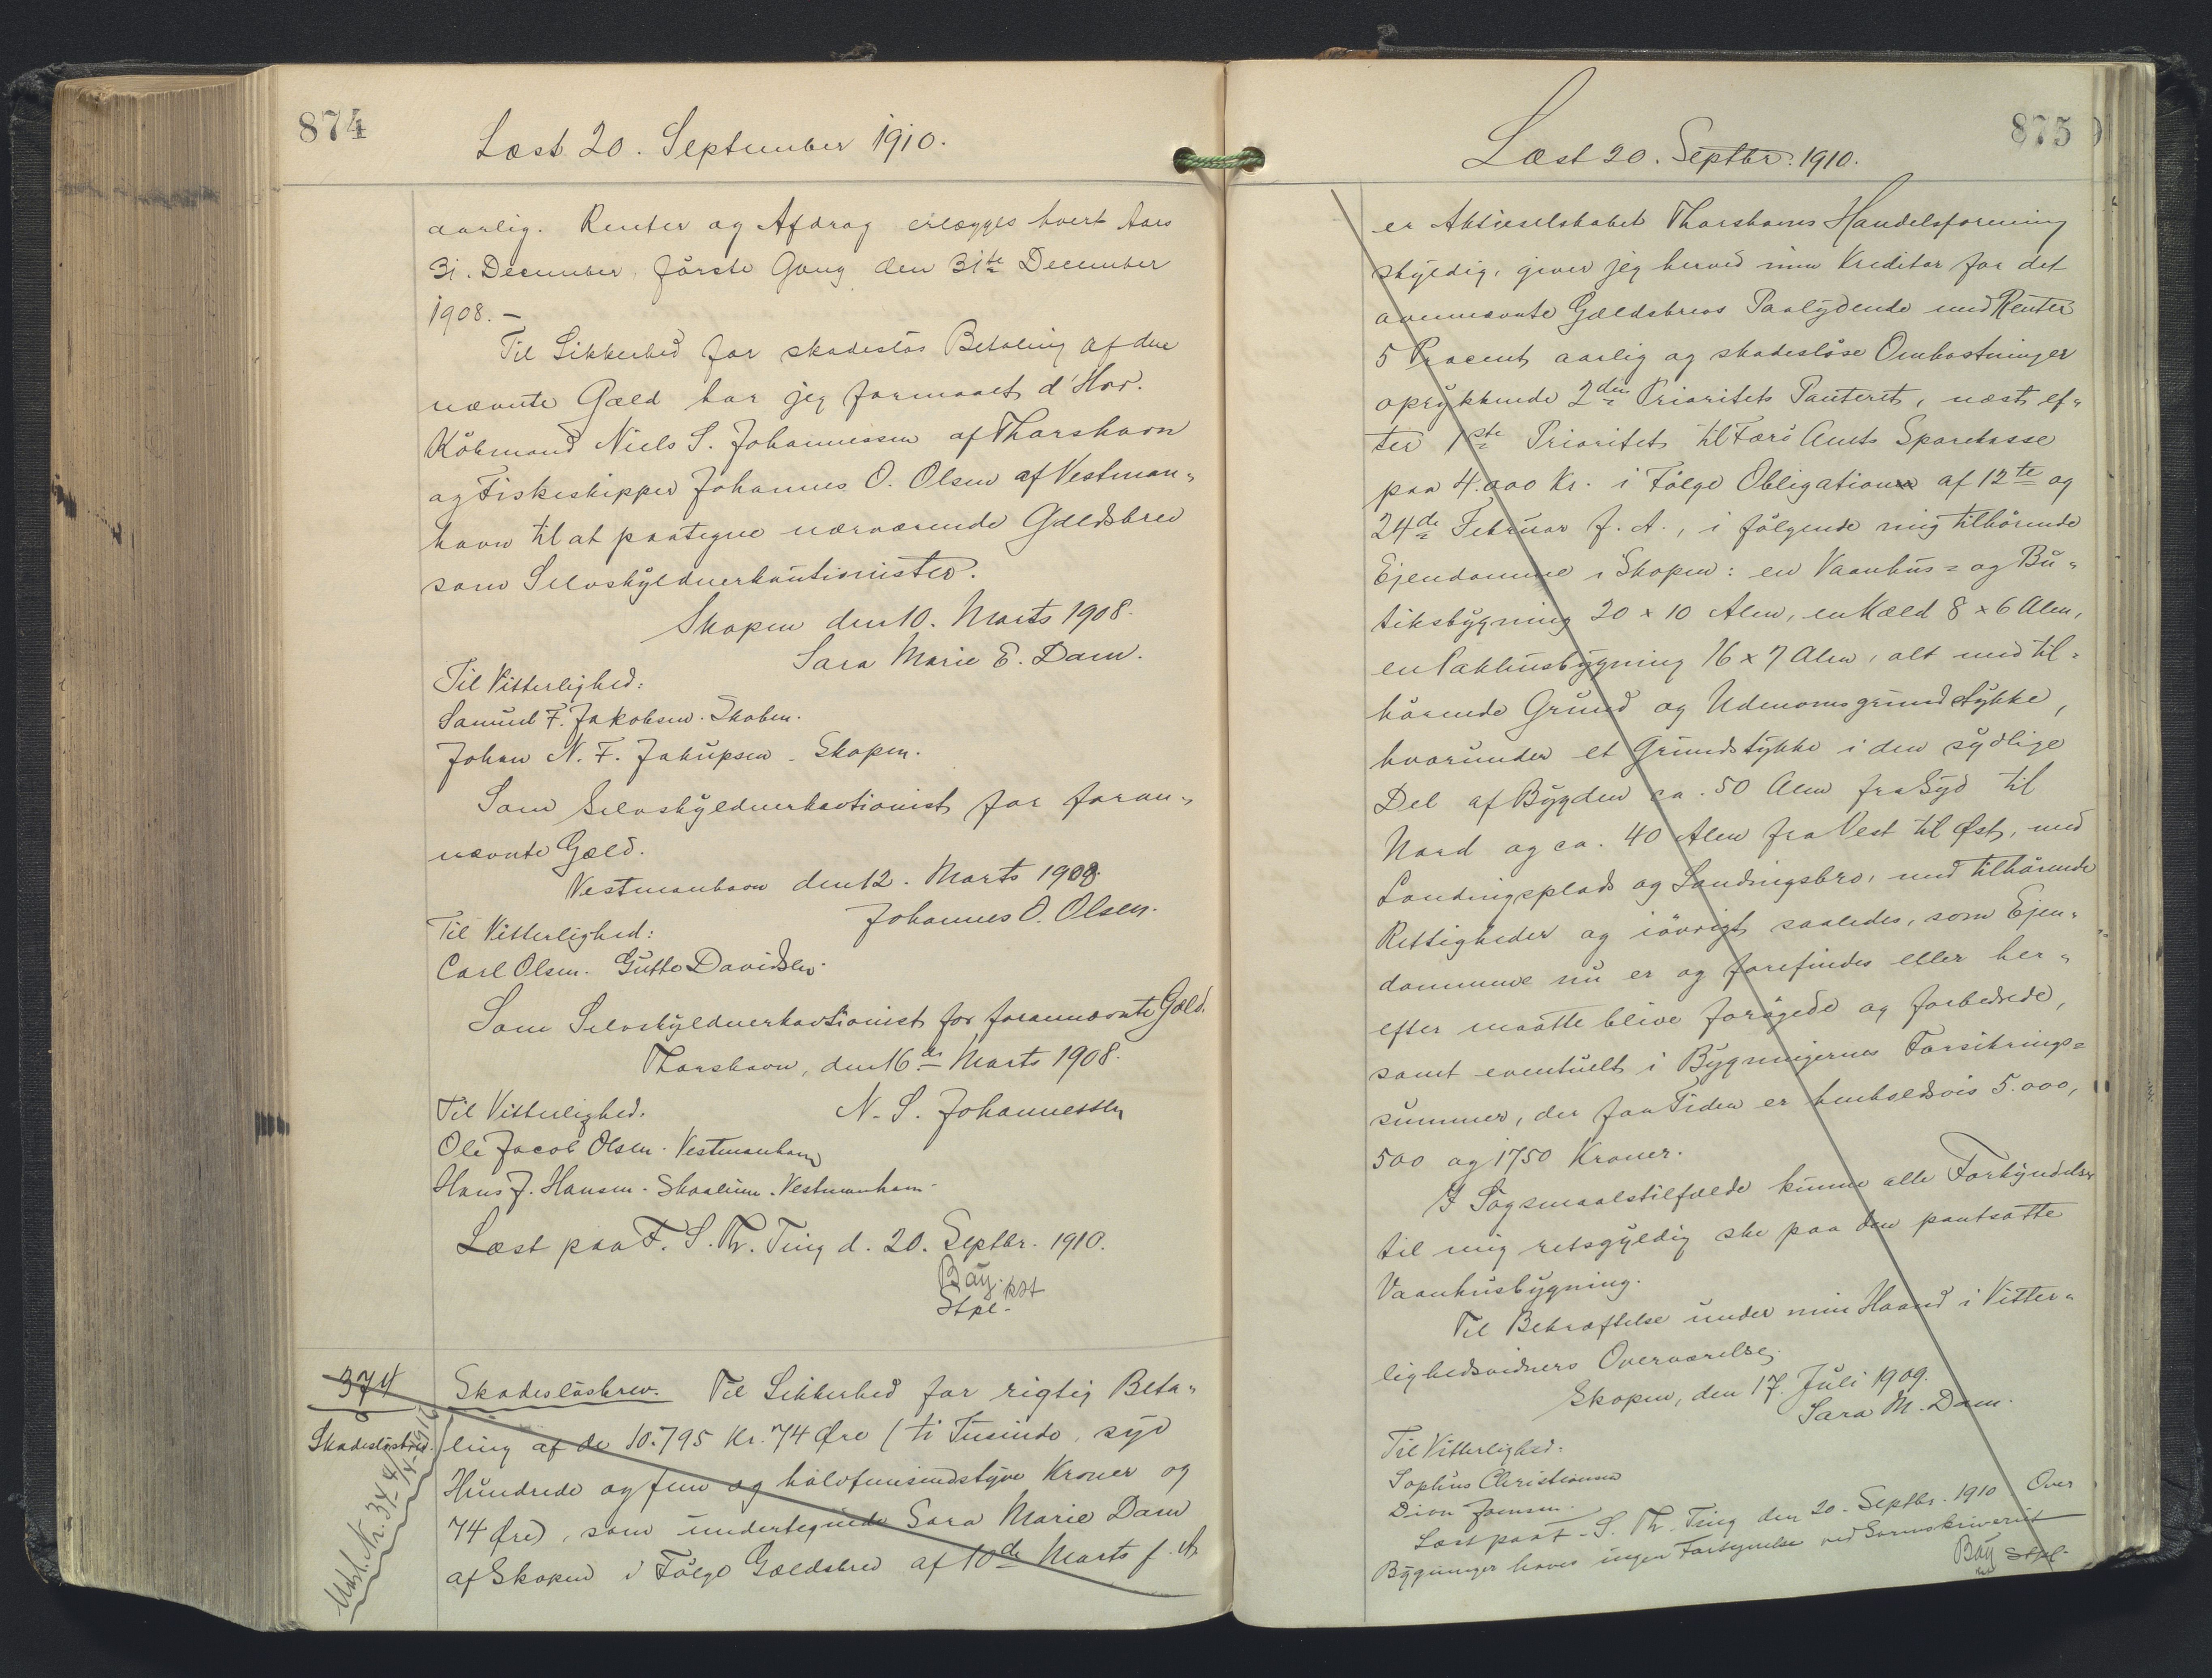 874
Læst 20. September 1910.
aarlig. Renter og Afdrag erlægges hvert Aars
31. December, første Gang den 31te December
1908. –
Til Sikkerhed for skadesløs Betaling af den
nævnte Gæld har jeg formaaet d'Hrr.
Købmand Niels S. Johannessen af Thorshavn
og Fiskeskipper Johannes O. Olsen af Vestman-
havn til at paategne nærværende Gældsbrev
som Selvskyldnerkautionister.
Skopen den 10. Marts 1908.
Sara Marie E. Dam.
Til Vitterlighed:
Samuel F. Jakobsen. Skoben.
Johan N. F. Jakupsen. Skopen.
Som Selvskyldnerkavtionist for foran-
nævnte Gæld.
Vestmanhavn den 12. Marts 1908.
Johannes O. Olsen.
Til Vitterlighed:
Carl Olsen. Gutte Davidsen.
Som Selvskyldnerkavtionist for forannævnte Gæld.
Thorshavn, den 16de Marts 1908.
Til Vitterlighed. N. S. Johannessen
Ole Jacob Olsen. Vestmanhavn
Hans J. Hansen. Skaalum. Vestmanhavn.
Læst paa F. S. Th. Ting d. 20. Septbr. 1910.
Bay.
kst
Stpl.
374
Skadesløsbrev.
Udsl. Nr. 34 4/4-1916
Skadesløsbrev. Til Sikkerhed for rigtig Beta-
ling af de 10.795 Kr. 74 Øre (ti Tusinde, syv
Hundrede og fem og halvfemsindstyve Kroner og
74 Øre), som undertegnede Sara Marie Dam
af Skopen i Følge Gældsbrev af 10de Marts f. A.
875
Læst 20. Septbr. 1910.
er Aktieselskabet Thorshavns Handelsforening
skyldig, giver jeg herved min Kreditor for det
ovennævnte Gældsbrevs Paalydende med Renter
5 Procent aarlig og skadesløse Omkostninger
oprykkende 2den Prioritets Panteret, næst ef-
ter 1ste Prioritet til Færø Amts Sparekasse
paa 4.000 Kr. i Følge Obligation af 12te og
24de Februar f. A., i følgende mig tilhørende
Ejendomme i Skopen: en Vaanhus- og Bu-
tiksbygning 20 x 10 Alen, en Kæld 8 x 6 Alen,
en Pakhusbygning 16 x 7 Alen, alt med til-
hørende Grund og Udenomsgrundstykke,
hvorunder et Grundstykke i den sydlige
Del af Bygden ca. 50 Alen fra Syd til
Nord og ca. 40 Alen fra Vest til Øst, med
Landingsplads og Landingsbro, med tilhørende
Rettigheder og iøvrigt saaledes, som Ejen-
dommene nu er og forefindes eller her-
efter maatte blive forøgede og forbedrede,
samt eventuelt i Bygningernes Forsikrings-
summer, der for Tiden er henholdsvis 5.000,
500 og 1750 Kroner.
I Søgsmaalstilfælde kunne alle Forkyndelser
til mig retsgyldig ske paa den pantsatte
Vaanhusbygning.
Til Bekræftelse under min Haand i Vitter-
lighedsvidners Overværelse.
Skopen, den 17. Juli 1909.
Sara M. Dam.
Til Vitterlighed:
Sophus Christiansen
Dion Joensen.
Læst paa F. S. Th. Ting den 20. Septbr. 1910 Over
Bygninger haves ingen Forsynelse ved Sorenskriveriet
Bay Stpl.